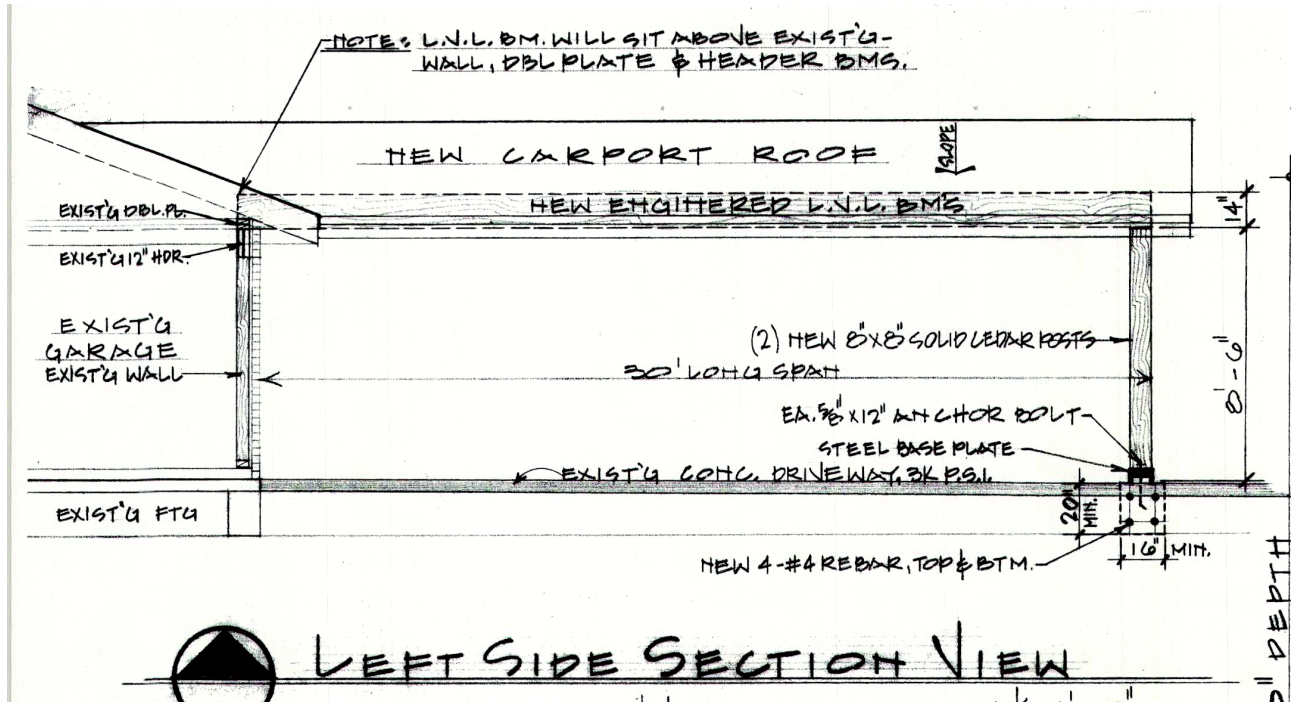 NOTE: L.V.L. BM. WILL SIT ABOVE EXIST'G
WALL, DBL PLATE & HEADER BMS.
NEW CARPORT ROOF
SLOPE
EXIST'G DBL. PL.
NEW ENGINEERED L.V.L. BM'S
14"
EXIST'G 12" HDR.
EXIST'G
GARAGE
EXIST'G WALL
(2) NEW 8"X8" SOLID CEDAR POSTS
30' LONG SPAN
8'-6"
EA. 5/8" X12" ANCHOR BOLT
STEEL BASE PLATE
EXIST'G CONC. DRIVEWAY, 3K P.S.I.
EXIST'G FTG
20"
MIN.
16" MIN.
NEW 4-#4 REBAR, TOP & BTM.
DEPTH
LEFT SIDE SECTION VIEW